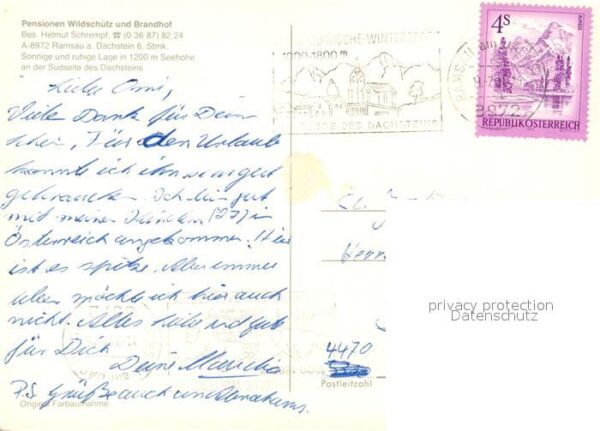 Pensionen Wildschütz und Brandhof
Bes. Helmut Schrempf. ☎ (0 36 87) 82 24
A-8972 Ramsau a. Dachstein 6. Stmk.
Sonnige und ruhige Lage in 1200 m Seehöhe
an der Südseite des Dachsteins
Liebe Omi,
Vielen Dank für Dein
schein, Für den Urlaub
konnte ich ihn sogut
gebrauchen. Ich bin gut
mit meinen in
Österreich angekommen. Hier
ist es spitze. Aber immer
leben möchte ich hier auch
nicht. Alles Liebe und gute
für Dich
Deine
P.S Grüße auch an
Original Farbaufnahme
1000-1800 m
DES DACHSTEINS
RAMSAU am
8972
4 S
REPUBLIK ÖSTERREICH
privacy protection
Datenschutz
4470
Postleitzahl